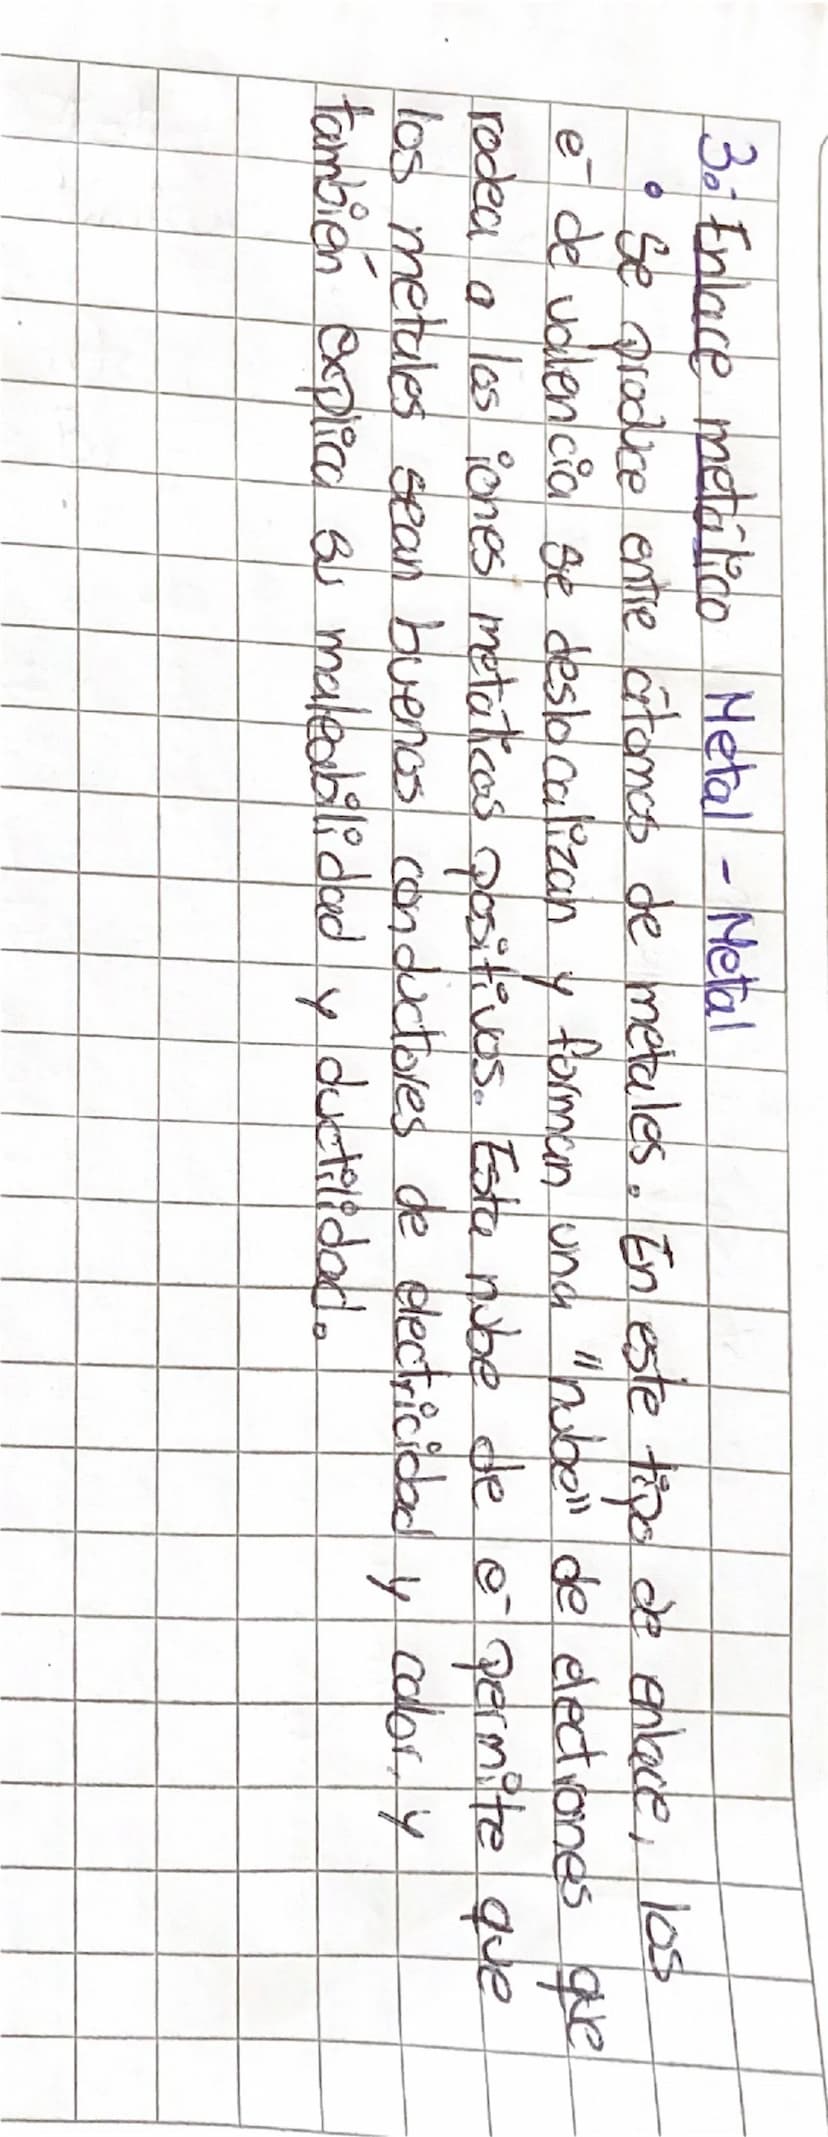 3.- Enlace metálico Metal - Metal
• Se produce entre átomos de metales. En este tipo de enlace, los
e- de valencia se deslocalizan y forman una "nube" de electrones que
rodea a los iones metálicos positivos. Esta nube de e- permite que
los metales sean buenos conductores de electricidad y calor, y
también explica su maleabilidad y ductilidad.